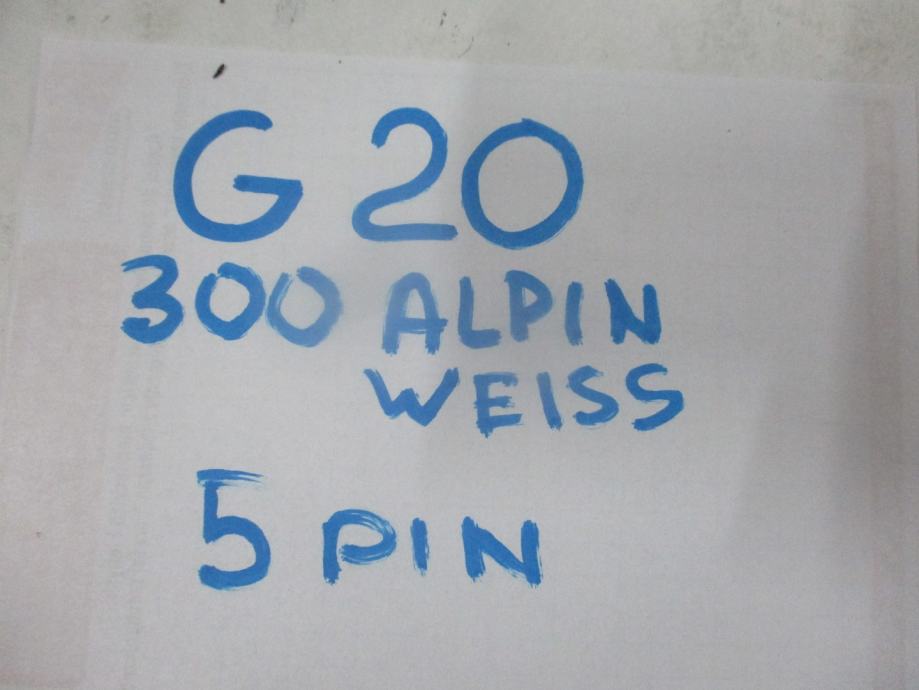 G 20
300 ALPIN
WEISS
5 PIN